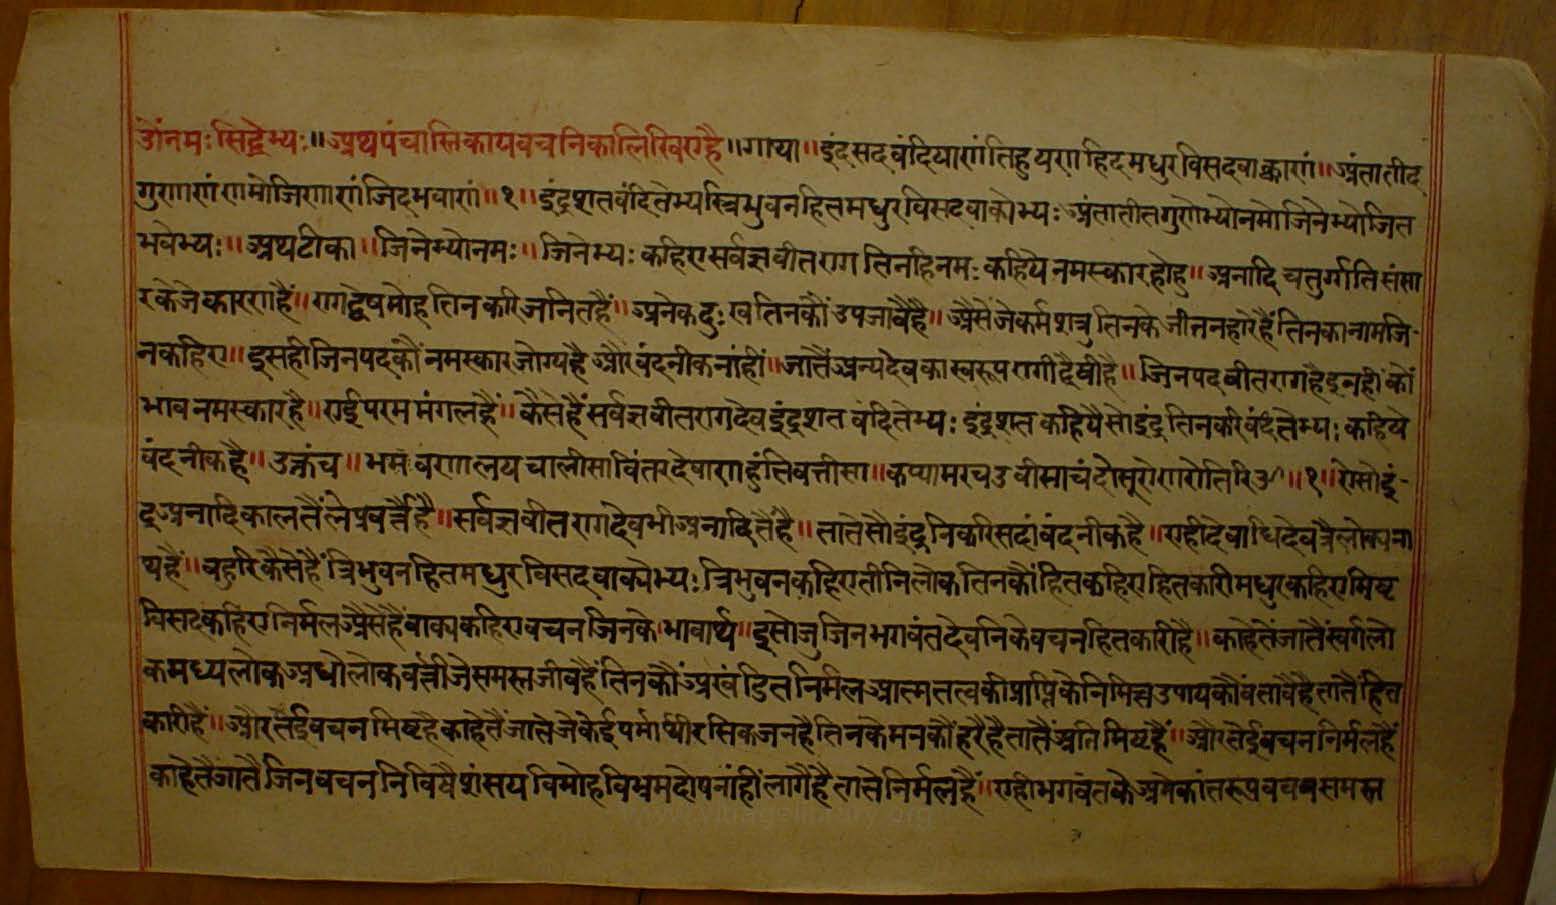 ॐनमःसिद्धेभ्यः॥अथपंचास्तिकायवचनिकालिखिएहै॥गाथा॥इंदसदवंदियाणंतिहुयणहिदमधुरविसदवाक्काणं॥अंतातीद
गुणाणंणमोजिणाणंजिदभवाणं॥१॥इंद्रशतवंदितेभ्यस्त्रिभुवनहितमधुरविसदवाक्येभ्यःअंतातीतगुणेभ्योनमोजिनेभ्योजित
भवेभ्यः॥अथटीका॥जिनेभ्योनमः॥जिनेभ्यःकहिएसर्वज्ञवीतरागतिनहिनमःकहियेनमस्कारहोहु॥अनादिचतुर्गतिसंसा
रकेजेकारणहैं॥रागद्वेषमोहतिनकरिजनितहैं॥अनेकदुःखतिनकौंउपजावैहै॥अैसेंजेकर्मशत्रुतिनकेजीतनहारेहैंतिनकानामजि-
नकहिए॥इसहीजिनपदकौंनमस्कारजोग्यहैऔरवंदनीकनांहीं॥जातैंअन्यदेवकास्वरूपरागीद्वैषीहै॥जिनपदवीतरागहैइनहींकों
भावनमस्कारहै॥एईपरममंगलहैं॥कैसेहैंसर्वज्ञवीतरागदेवइंद्रशतवंदितेभ्यःइंद्रशतकहियैसोइंद्रतिनकरिवंदितेभ्यःकहिये
वंदनीकहै॥उक्तंच॥भमवणालयचालीसावितरदेवाणहुंतिवत्तीसा॥कप्पामरचउवीसाचंदोसूरोणरोतिरिउ॥१॥ऐसोइं-
द्रअनादिकालतैंलेप्रवर्त्तैहै॥सर्वज्ञवीतरागदेवभीअनादितैंहै॥तातेसौइंद्रनिकरिसदांवंदनीकहै॥एहीदेवाधिदेवत्रैलोक्यना
थहैं॥वहुरिकैसेंहैंत्रिभुवनहितमधुरविसदवाक्येभ्यःत्रिभुवनकहिएतीनिलोकतिनकौंहितकहिएहितकारीमधुरकहिएमिष्ट
विसदकहिएनिर्मलअैसेहैंवाक्यकहिएवचनजिनके।भावार्थ॥इसोजुजिनभगवंतदेवनिकेवचनहितकारीहै॥काहेतेंजातैंस्वर्गलो
कमध्यलोकअधोलोकवर्त्तीजेसमस्तजीवहैंतिनकौंअखंडितनिर्मलआत्मतत्वकीप्राप्तिकेनिमित्तउपायकौंवतावैहैतातैंहित
कारीहैं॥औरतेईवचनमिष्टहैकाहेतैंजातेजेकेईपर्मार्थीरसिकजनहैतिनकेमनकौंहरैहैतातैंअतिमिष्टहैं॥औरतेईवचननिर्मलहैं
काहेतैजातैजिनवचननिविषैशंसयविमोहविभ्रमदोषनांहींलागैंहैतातेनिर्मलहैं॥एहीभगवंतकेअनेकांतरूपवचनसमस्त